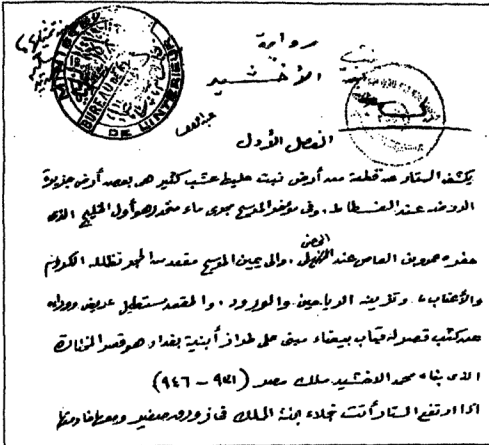 رواية
الأخشيد
MINIS
BUREAU DE
DE L'INTERIEUR
الفصل الأول
يكشف الستار عن قطعة من أرض نبت عليها عشب كثير هى بعض أرض جزيرة
الروضة عند الفسطاط. وفى مؤخر المسرح مجرى ماء منحدر هو أول الخليج الذى
حفره عمرو بن العاص عند الحصن. والى يمين المسرح مقعد من الحجر تظلله الكروم
والأعناب وتزينه الرياحين والورود، والمقعد مستطيل عريض ووراءه
عن كثب قصر له قباب بيضاء مبنى على طراز أبنية بغداد هو قصر المختار
الذى بناه محمد الاخشيد ملك مصر (٩٣١ - ٩٤٦)
اذا ارتفع الستار أتت نجلاء ابنة الملك فى زورق صغير ومعها خادمتها